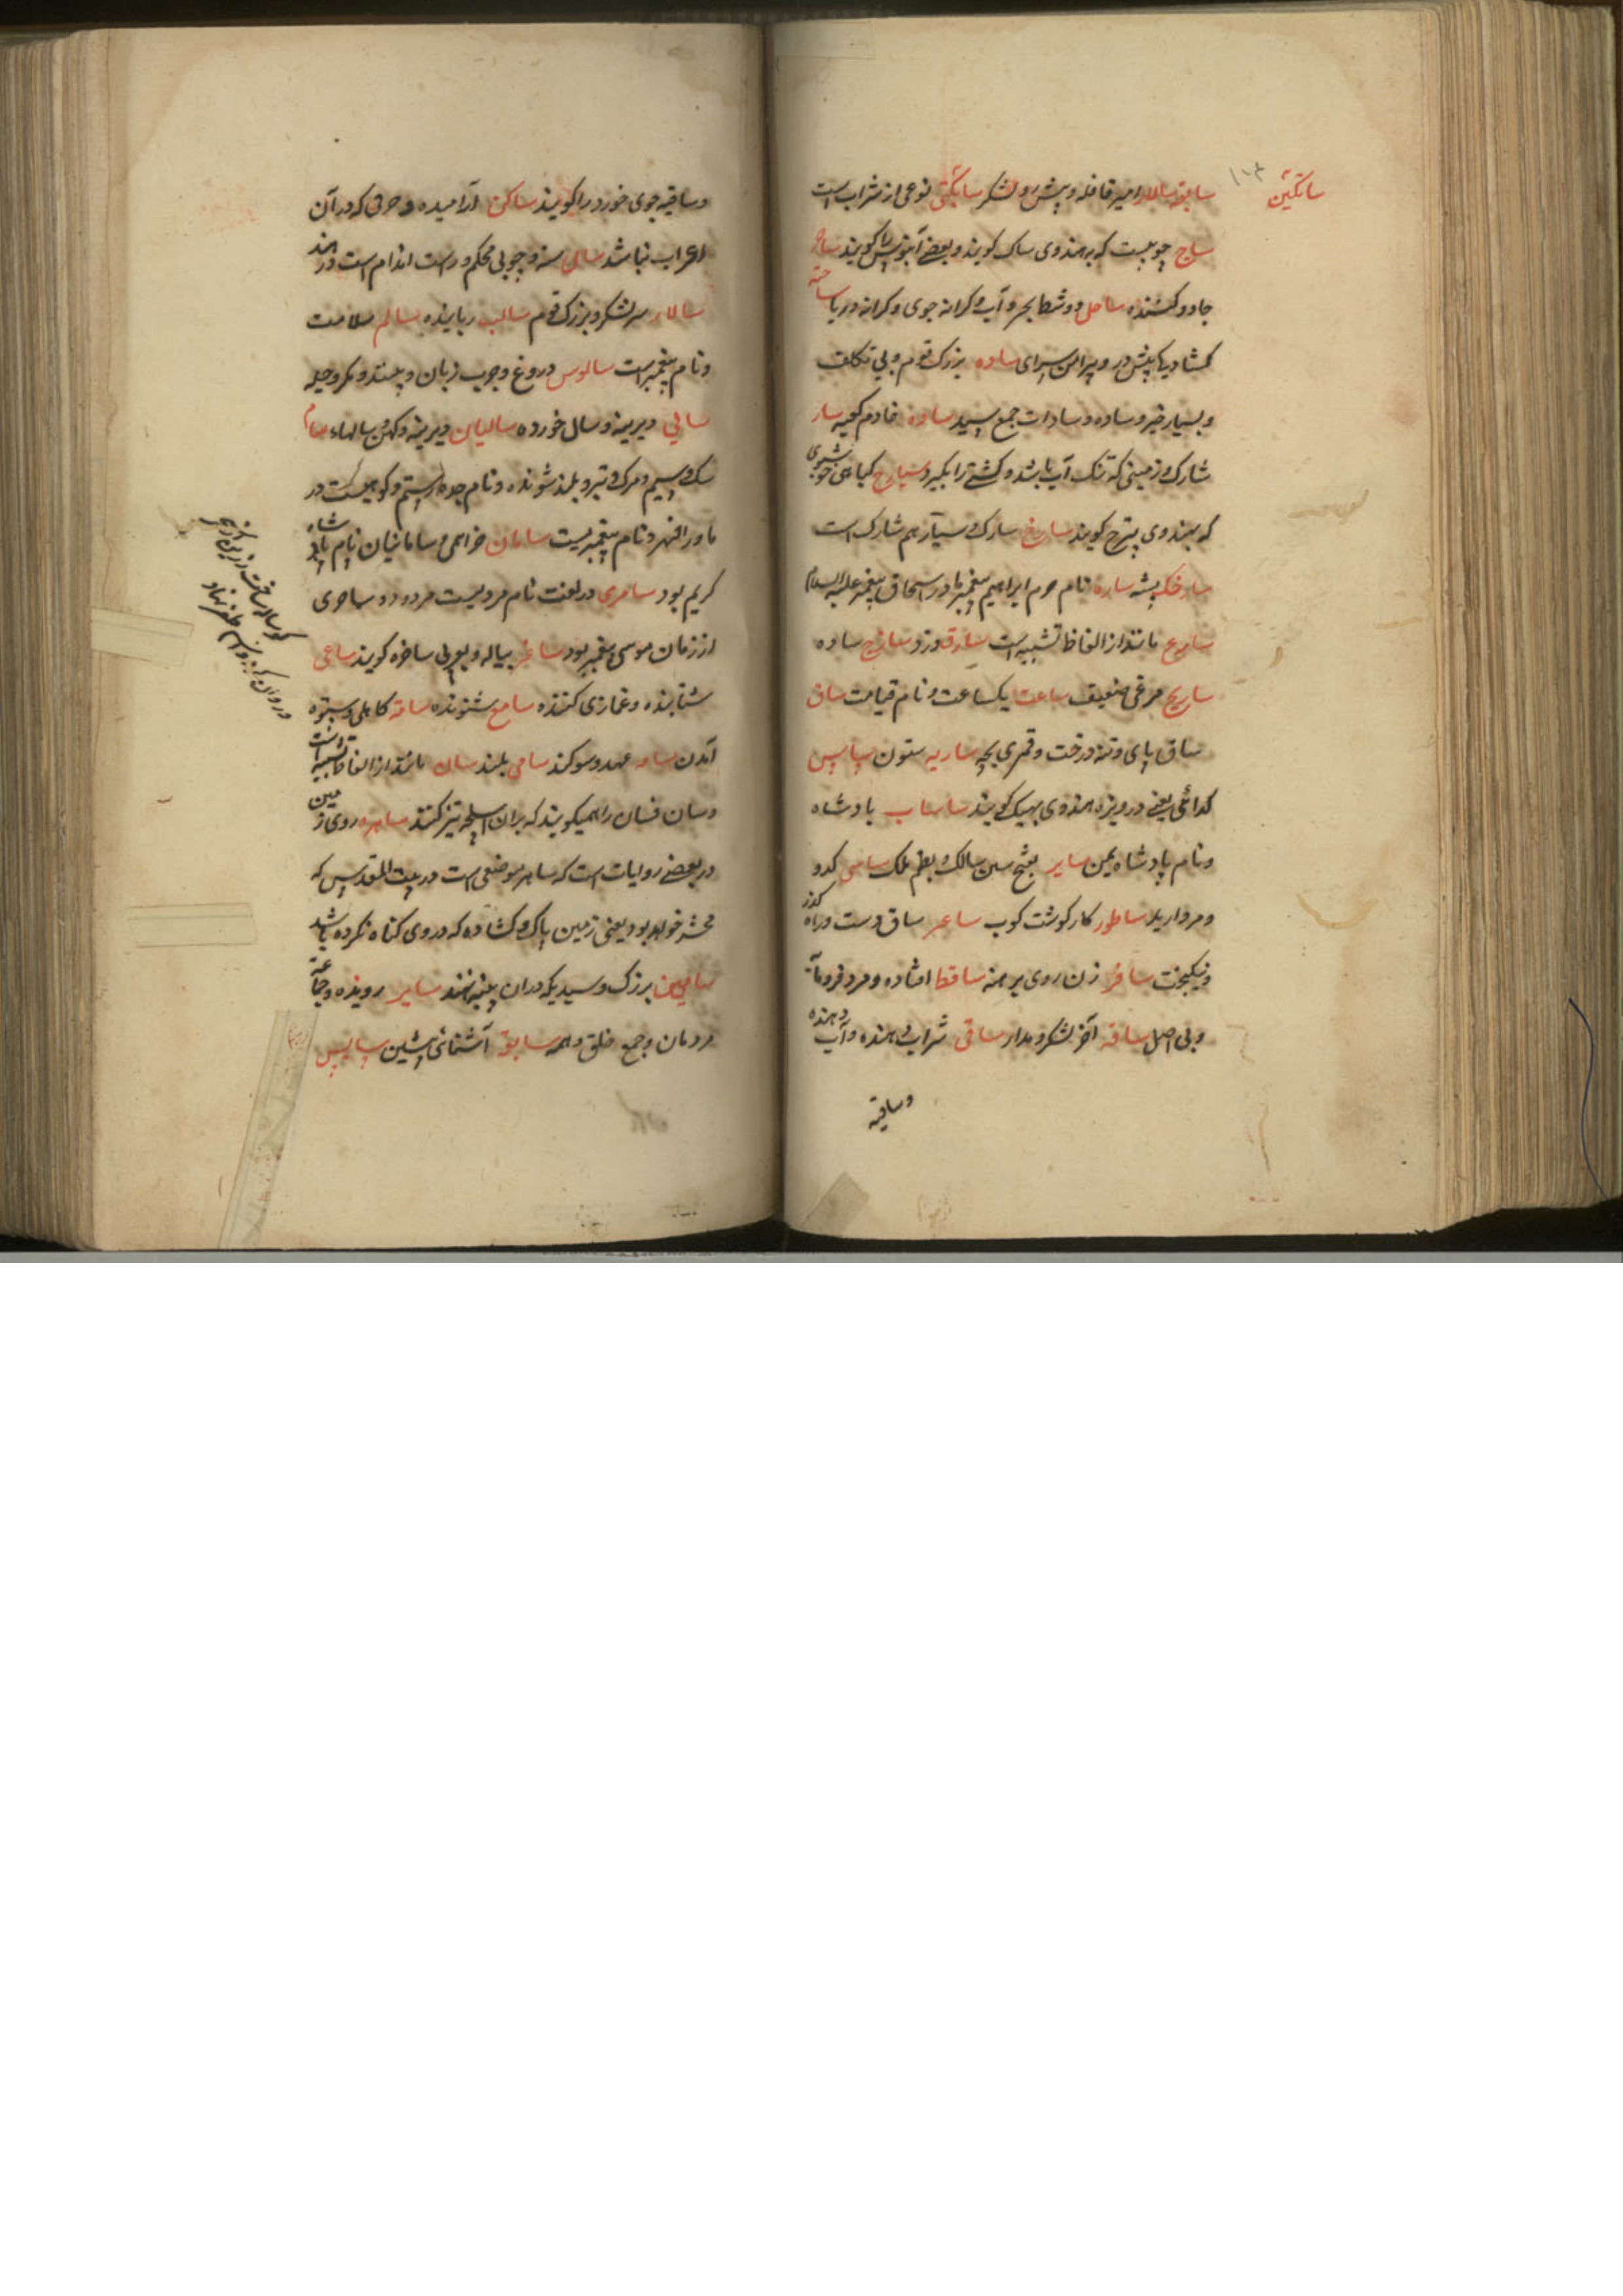 ساتگین
۱۰۳
سابقه سالار امیر قافله و پیش رو لشکر ساتگنی نوعی از شراب است
ساج چوبیست که بهندوی ساک گویند و بعضی آبنوس را گویند ساحر
جادو کننده ساحل دو شط بحر و آب و کرانه جوی و کرانه دریا ساحة
کشادیگی پیش در و پیرامن سرای ساده بزرگ قوم و بی تکلف
و بسیار خیر و ساده و سادات جمع سید سادن خادم کعبه سار
شارک و زمینی که تنک آب باشد و کشتی را بگیرد سیارج گیاهی خوشبوی
که بهندوی پترج گویند سارخ سارک و سیار هم شارک است
سارخک پشه ساره نام حرم ابراهیم پیغمبر مادر اسحاق پیغمبر علیه السلام
مانند از الفاظ تشبیه است سارق دزد ساذج ساده
ساریج مرغی ضعیف ساعت یکساعت و نام قیامت ساق
ساق پای و تنه درخت و قمری بچه ساریه ستون سپاس
گدائی یعنی دریوزه بهندوی بهیک گویند ساساب پادشاه
و نام پادشاه یمن سایر بفتح سین سالک و بضم ملک ساسی گدو
و مردار یلا ساطور کارد گوشت کوب ساعد ساق دست و راه گذر
و نیکبخت سافر زن روی برهنه ساقط افتاده و مرد فرومایه
و بی اصل ساقه آخر لشکر و مدار ساقی شراب دهنده و آب دهنده
و ساقیه
و ساقیه جوی خورد را گویند ساکن آرامیده و حرفی که در آن
اعراب نباشد سال سنه و چوبی محکم و راست اندام است در هند
سالار سر لشکر و بزرگ قوم سالب رباینده سالم سلامت
و نام پیغمبر است سالوس دروغ و چرب زبان و پسند و مکر و حیله
سالی دیرینه و سال خورده سالیان دیرینه و کهن سالهاء سام
سک و سیم و مرک و تیر و بلند شونده و نام جد رستم و کوهیست در
ماوراالنهر و نام پیغمبریست سامان فراهمی و سامانیان نام پادشاه
کریم بود سامری در لغت نام مردیست مردود و ساحری
از زمان موسی پیغمبر بود ساغر پیاله و بعربی ساخره گویند ساعی
شتابنده و غمازی کننده سامع شنونده سامة کاهلی و ستوه
آمدن سامه عهد و سوگند سامی بلند سان مانند از الفاظ تشبیه است
و سان فسان را همیگویند که بران اسلحه تیز کنند ساهره روی زمین
در بعضی روایات است که ساهره موضعی است در بیت المقدس که
محشر خواهد بود یعنی زمین پاک و کشاده که در وی گناه نکرده باشد
بزرگ و سیدیکه دران پنبه نهند سایر رونده و جماعه
مردمان و جمع خلق و همه سابق آشنائی پیشین سپاس
گوساله ساخت